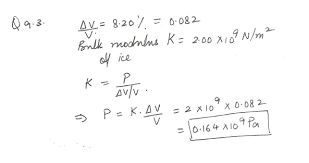 Q 9.3. ΔV/V = 8.20 % = 0.082
Bulk modulus K = 2.00 × 10⁹ N/m²
of ice
K = P / ΔV/V.
⇒ P = K. ΔV/V = 2 × 10⁹ × 0.082
= 0.164 × 10⁹ Pa